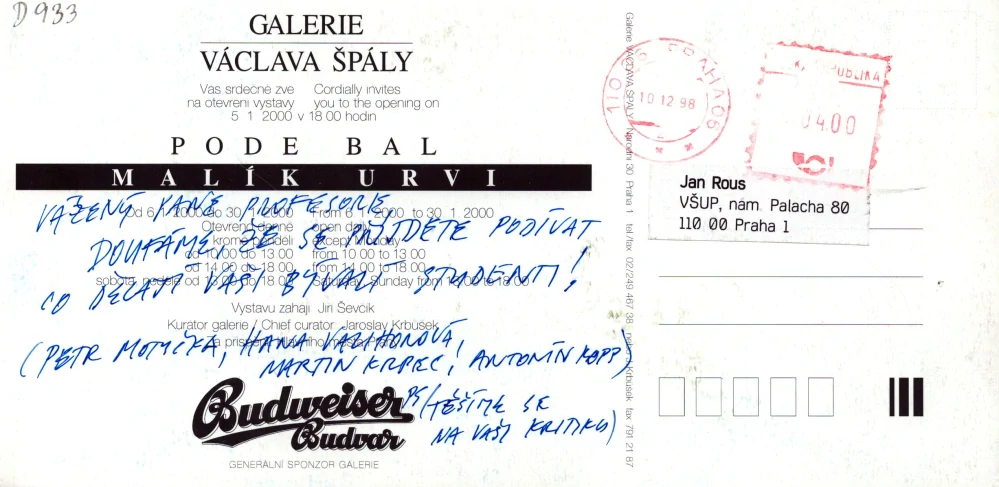 D 933
GALERIE
VÁCLAVA ŠPÁLY
Vás srdečně zve Cordially invites
na otevření výstavy you to the opening on
5 1 2000 v 18 00 hodin
PODE BAL
MALÍK URVI
VÁŽENÝ PANE PROFESORE,
Od 6 1 2000 do 30 1 2000 From 6 1 2000 to 30 1 2000
Otevřeno denně open daily
DOUFÁME, ŽE SE PŘIJDETE PODÍVAT
kromě pondělí except Monday
od 10 00 do 13 00 from 10 00 to 13 00
od 14 00 do 18 00 from 14 00 to 18 00
CO DĚLAJÍ VAŠI BÝVALÍ STUDENTI!
sobota, neděle od 10 00 do 18 00 Saturday, Sunday from 10 00 to 18 00
Výstavu zahájí Jiří Ševčík
Kurátor galerie / Chief curator Jaroslav Krbůšek
Za přispění hlavního města Prahy
(PETR MOTYČKA, HANA VALIHOROVÁ,
MARTIN KRPEC, ANTONÍN KOPP)
Budweiser
Budvar
PS (TĚŠÍME SE
NA VAŠI KRITIKU)
GENERÁLNÍ SPONZOR GALERIE
Galerie VÁCLAVA ŠPÁLY Národní 30 Praha 1 tel/fax 02/249 467 38 Krbůšek fax 791 21 87
PRAHA 06
10 12 98
REPUBLIKA
04.00
Jan Rous
VŠUP, nám. Palacha 80
110 00 Praha 1